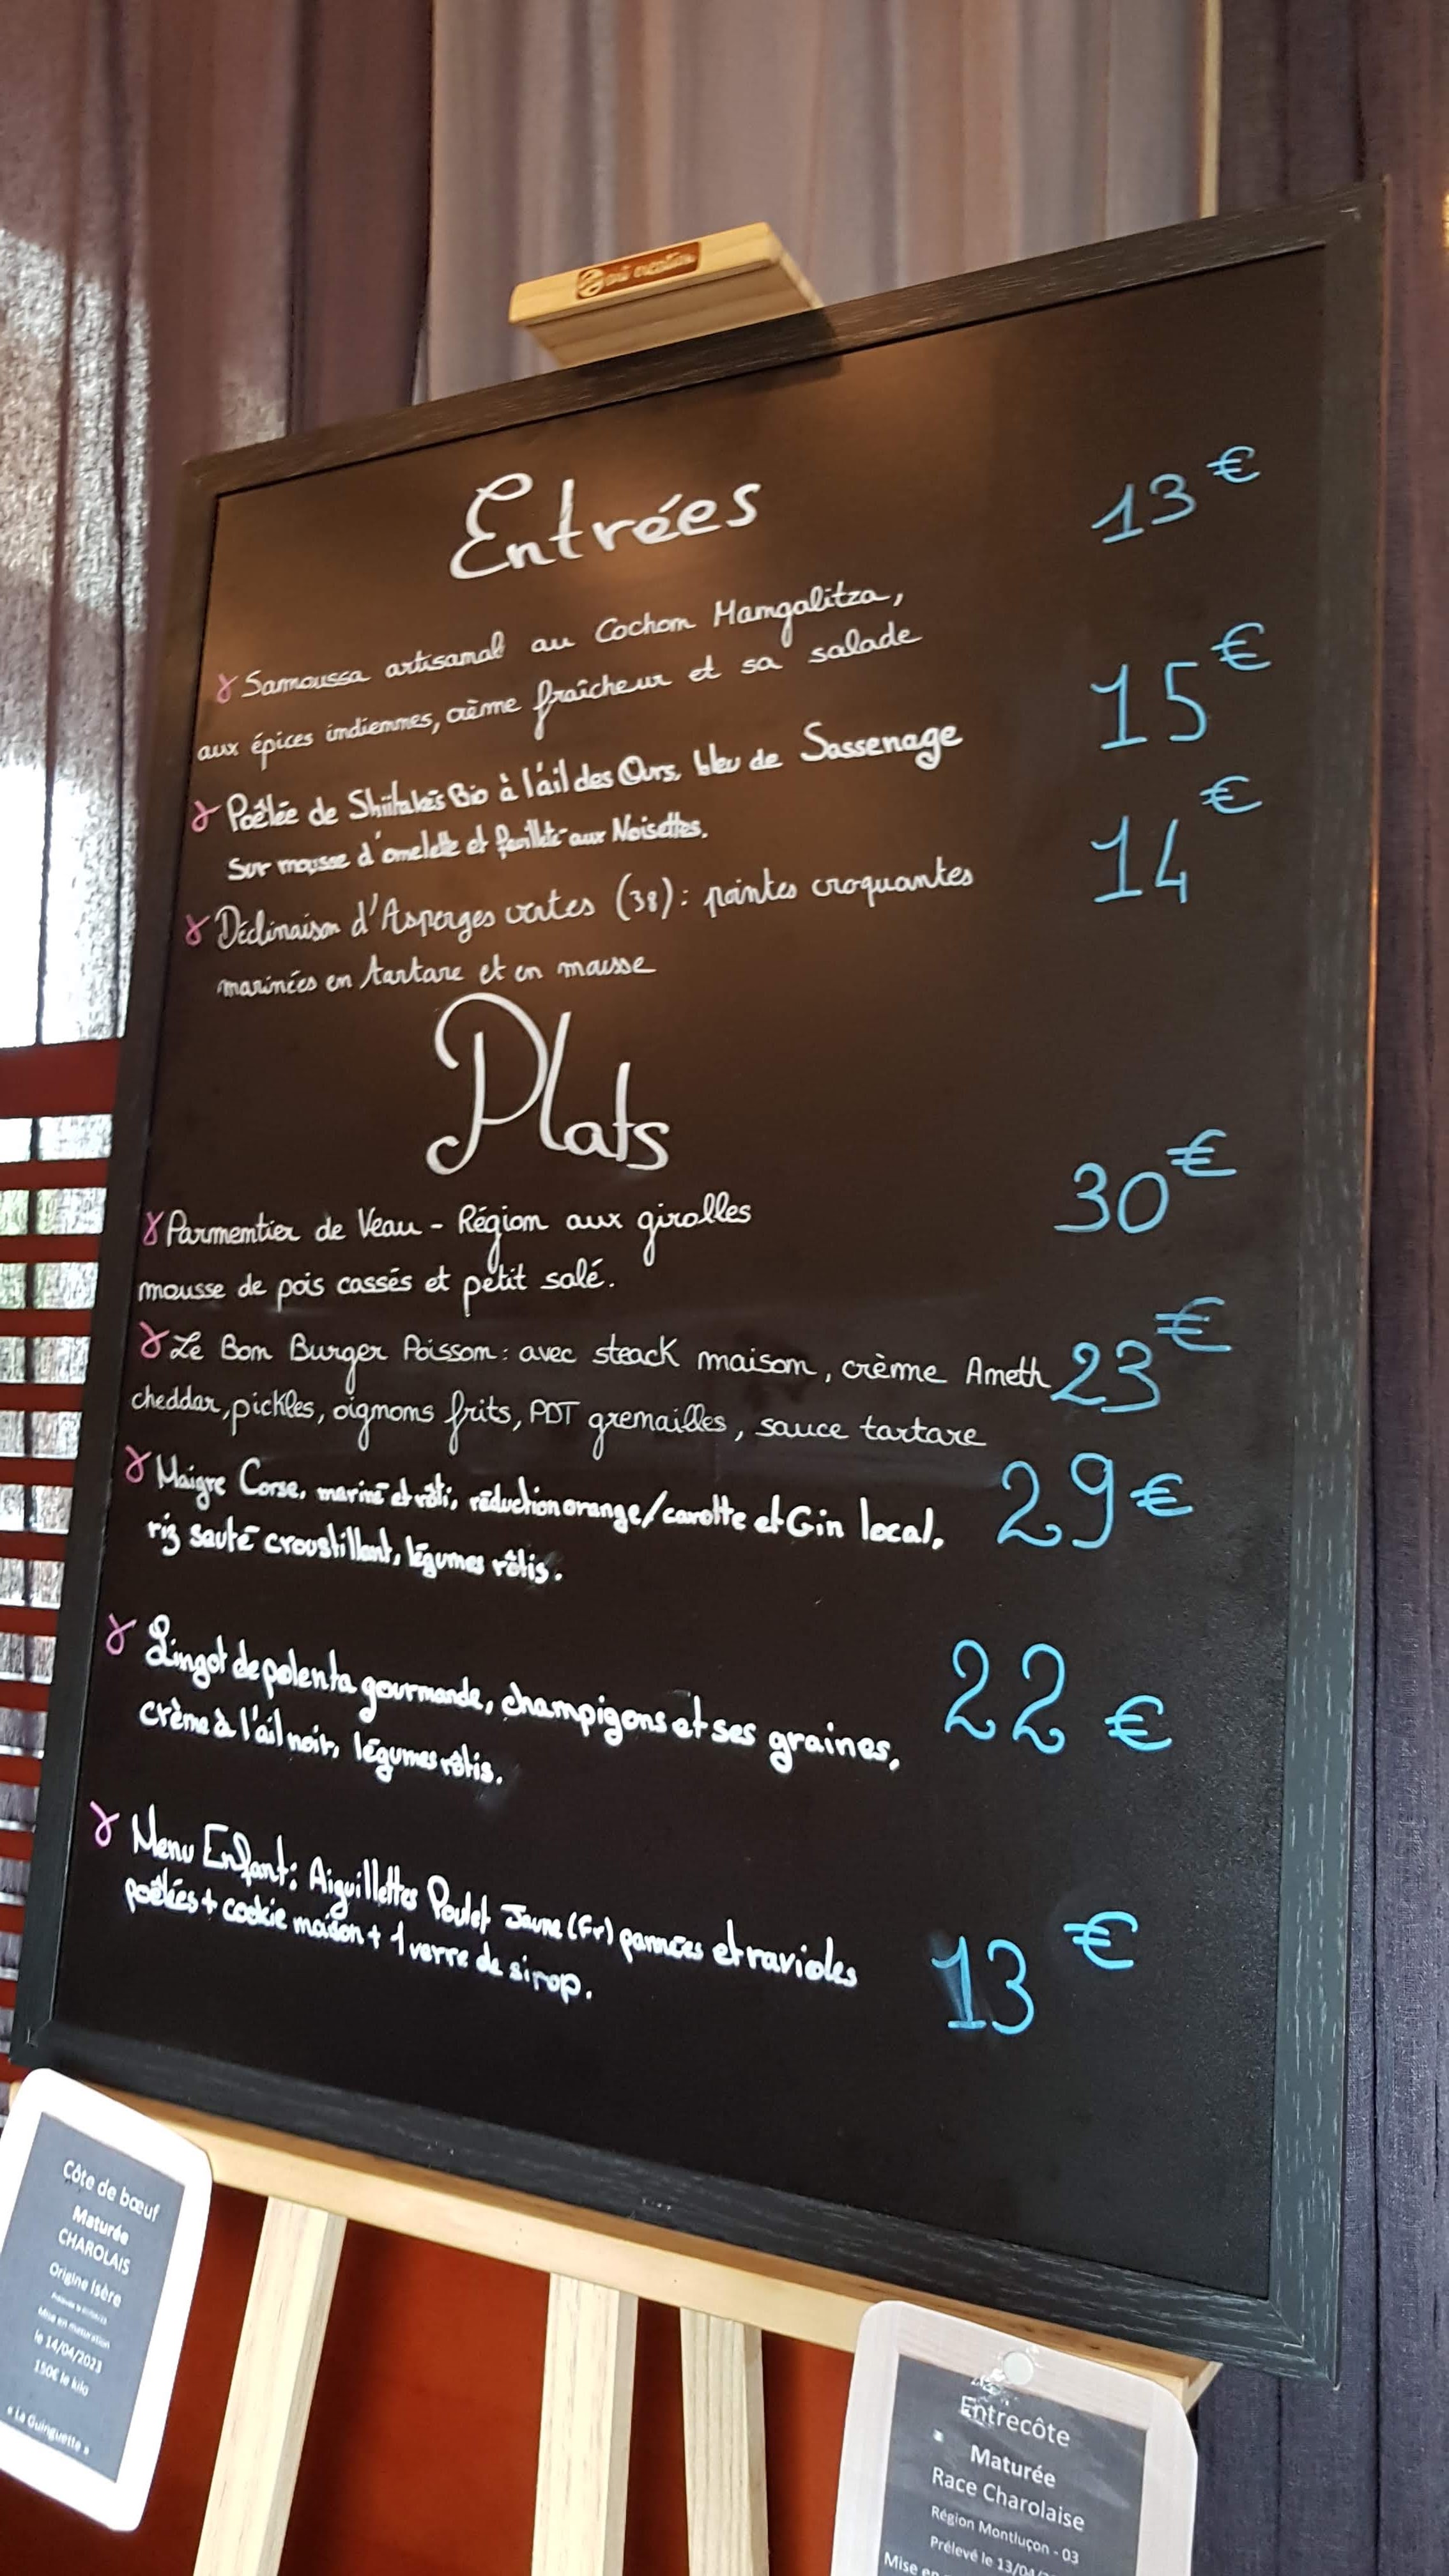 Entrées
13 €
Samoussa artisanal au Cochon Mangalitza,
aux épices indiennes, crème fraîcheur et sa salade
15 €
Poêlée de Shiitakés Bio à l'ail des Ours, bleu de Sassenage
Sur mousse d'omelette et feuilleté aux Noisettes.
14 €
Déclinaison d'Asperges vertes (38) : pointes croquantes
marinées en tartare et en mousse
Plats
Parmentier de Veau - Région aux girolles
30 €
mousse de pois cassés et petit salé.
Le Bon Burger Poisson : avec steack maison, crème Ameth
23 €
cheddar, pickles, oignons frits, PDT grenailles, sauce tartare
Maigre Corse, mariné et rôti, réduction orange/carotte et Gin local,
29 €
riz sauté croustillant, légumes rôtis.
Lingot de polenta gourmande, champigons et ses graines,
22 €
crème à l'ail noir, légumes rôtis.
Menu Enfant : Aiguillettes Poulet Jaune (Fr) pannées et ravioles
13 €
poêlées + cookie maison + 1 verre de sirop.
Côte de bœuf
Maturée
CHAROLAIS
Origine Isère
Mise en maturation
le 14/04/2023
150€ le kilo
« La Guinguette »
Entrecôte
Maturée
Race Charolaise
Région Montluçon - 03
Prélevé le 13/04/
Mise en